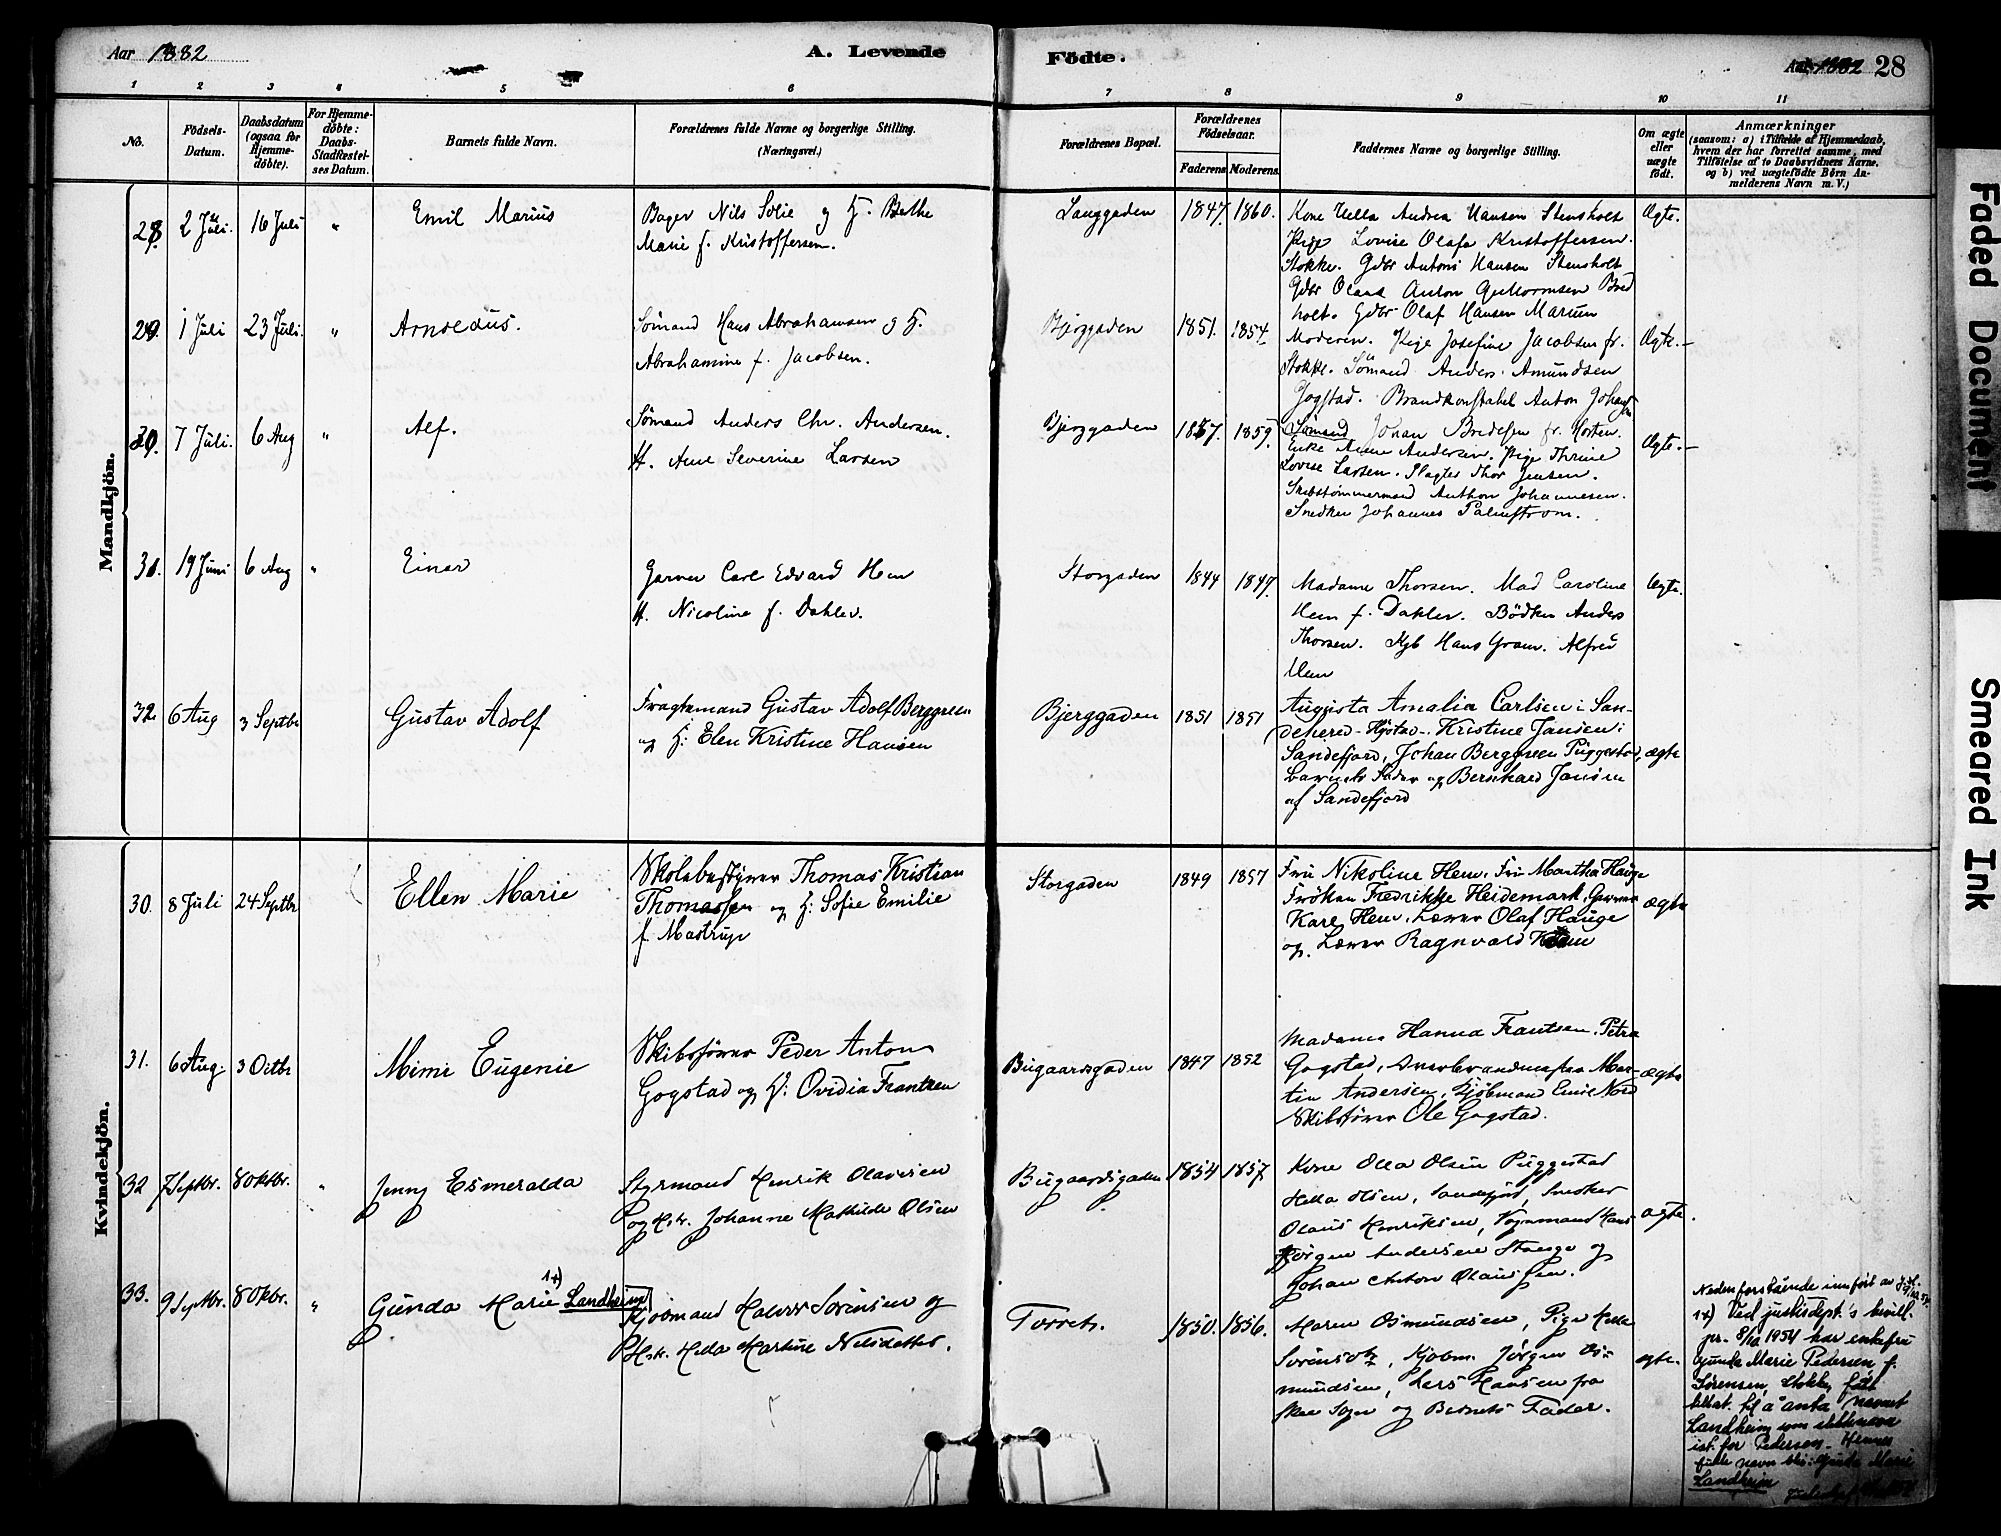 Aar 1882
A. Levende
Födte.
Aar 1882 28
1 2 3 4 5 6 7 8 9 10 11
No.
Födsels-
Datum.
Daabsdatum
(ogsaa for
Hjemme-
döbte).
For Hjemme-
döbte:
Daabs-
Stadfæstel-
ses Datum.
Barnets fulde Navn.
Forældrenes fulde Navne og borgerlige Stilling.
(Næringsvei.)
Forældrenes Bopæl.
Forældrenes
Födselsaar.
Faderens Moderens
Faddernes Navne og borgerlige Stilling.
Om ægte
eller
uægte
födt.
Anmærkninger
(saasom: a) i Tilfælde af Hjemmedaab,
hvem der har forrettet samme, med
Tilföielse af to Daabsvidners Navne,
og b) ved uægtefödte Börn An-
melderens Navn m. V.)
Mandkjön.
28. 2 Juli. 16 Juli " Emil Marius
Bager Nils Solie og H. Bethe
Marie f. Kristoffersen.
Langgaden 1847. 1860.
Kone Hella Andrea Hansen Stensholt
Pige Lovise Olafa Kristoffersen.
Stokke. Gdbr Antoni Hansen Stensholt
Gdbr Olaus Anton Guttormsen Bred
holt. Gdbr Olaf Hansen Marum
Ægte.
29. 1 Juli 23 Juli. " Arnoldus.
Sömand Hans Abrahamsen og H.
Abrahamine f. Jacobsen.
Bjerggaden 1851. 1854.
Moderen. Pige Josefine Jacobsen fr.
Stokke. Sömand Anders Amundsen
Jogstad. Brandkonstabel Anton Johansen
Ægte.
30. 7 Juli. 6 Aug " Alf.
Sömand Anders Chr. Andersen.
H. Ane Severine Larsen
Bjerggaden 1857. 1859.
Sömand Johan Bredesen fr. Horten.
Enke Anne Andersen. Pige Thrine
Lovise Larsen. Slagter Thor Jensen.
Skibstömmermand Anthon Johannesen.
Snedker Johannes Palmstrom.
Ægte.
31. 19 Juni 6 Aug " Einar
Garver Carl Edvard Hem
H. Nicoline f. Dahler.
Storgaden 1844 1847.
Madame Thorsen. Mad Caroline
Hem f. Dahler. Bödker Anders
Thorsen. Hans Gram. Alfred
Hem
Ægte.
32. 6 Aug 3 Septbr Gustav Adolf
Fragtemand Gustav Adolf Berggren
og H: Elen Kristine Hansen
Bjerggaden 1851 1851
Augusta Amalia Carlsen i San-
dehered - Hjöstad -. Kristine Jansen i
Sandefjord, Johan Berggreen Püggestad,
Barnets Fader og Bernhard Jansen
af Sandefjord
ægte
Kvindekjön.
30. 8 Juli 24 Septbr Ellen Marie
Skolebestyrer Thomas Kristian
Thomassen og H: Sofie Emilie
f. Mastrup
Storgaden 1849 1857
Fru Nikoline Hem. Fru Martha Hauge
Fröken Fredrikke Heidemark, Garver
Karl Hem, Lærer Olaf Hauge
og Lærer Ragnvald
ægte
31. 6 Aug. 3 Octbr Mimi Eugenie
Skibsförer Peder Anton
Gogstad og H: Ovidia Frantzen
Bugaardsgaden 1847 1852
Madame Hanna Frantsen. Petra
Gogstad, Mar-
tin Andersen, Kjöbmand Emil Nord
Skibsförer Ole Gogstad.
ægte
32 7 Septbr. 8 Oktbr. " Jenny Esmeralda
Styrmand Henrik Olavesen
og H. Johanne Mathilde Olsen
Bugaardsgaden 1854 1857
Kone Olla Olsen Püggestad
Hella Olsen, Sandefjord, Snedker
Olaus Henriksen, Vognmand Hans
Jörgen Andersen Stange og
Johan Anton Olaussen.
ægte.
33. 9 Septbr. 8 Okbr. " Gunda Marie 1+) Landheim
Kjöbmand Halvor Sörensen og
H. Hella Martine Nilsdatter.
Torvet. 1850. 1856.
Maren Osmundsen, Pige Hella
Kjöbm. Jörgen Os=
mundsen, Lars Hansen fra
Sogn og Barnets Fader.
ægte.
Nedenforstående innført av
1+) Ved justisdept.'s bevill.
pr. 8/10 1954 har enkefru
Gunda Marie Pedersen, f.
Sørensen, Stokke, fått
tillat. til å anta navnet
Landheim som slektsnavn
ist. for Pedersen. Hennes
fulle navn blir: Gunda Marie
Landheim
Faded Document
Smeared Ink